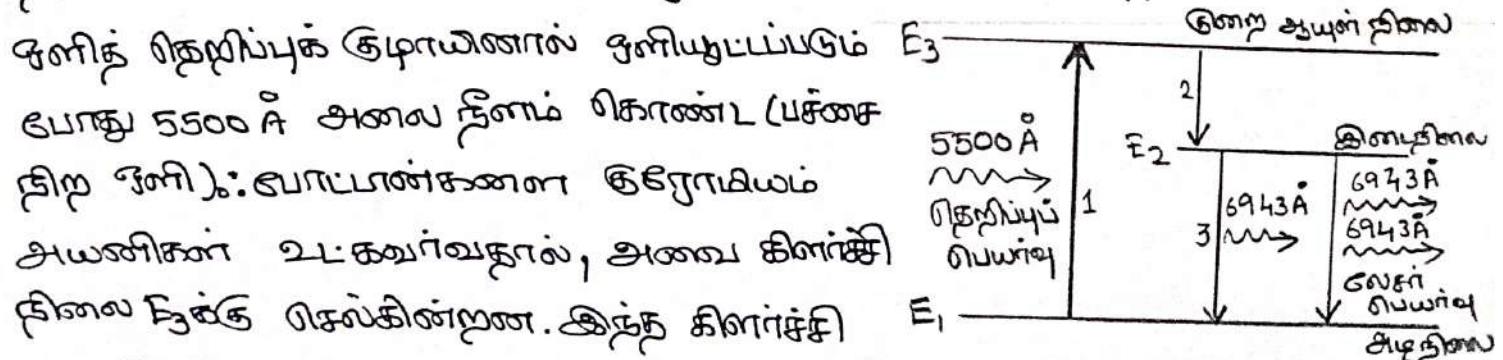 ஒளித் தெறிப்புக் குழாயினால் ஒளியூட்டப்படும்
போது 5500 Å அலை நீளம் கொண்ட (பச்சை
நிற ஒளி) ஃபோட்டான்களை குரோமியம்
அயனிகள் உட்கவர்வதால், அவை கிளர்ச்சி
நிலை E₃க்கு செல்கின்றன. இந்த கிளர்ச்சி
E₃ குறை ஆயுள் நிலை
2
E₂ இடைநிலை
5500 Å
தெறிப்புப்
பெயர்வு
1
3
6943 Å
6943 Å
6943 Å
லேசர்
பெயர்வு
E₁
அடி நிலை